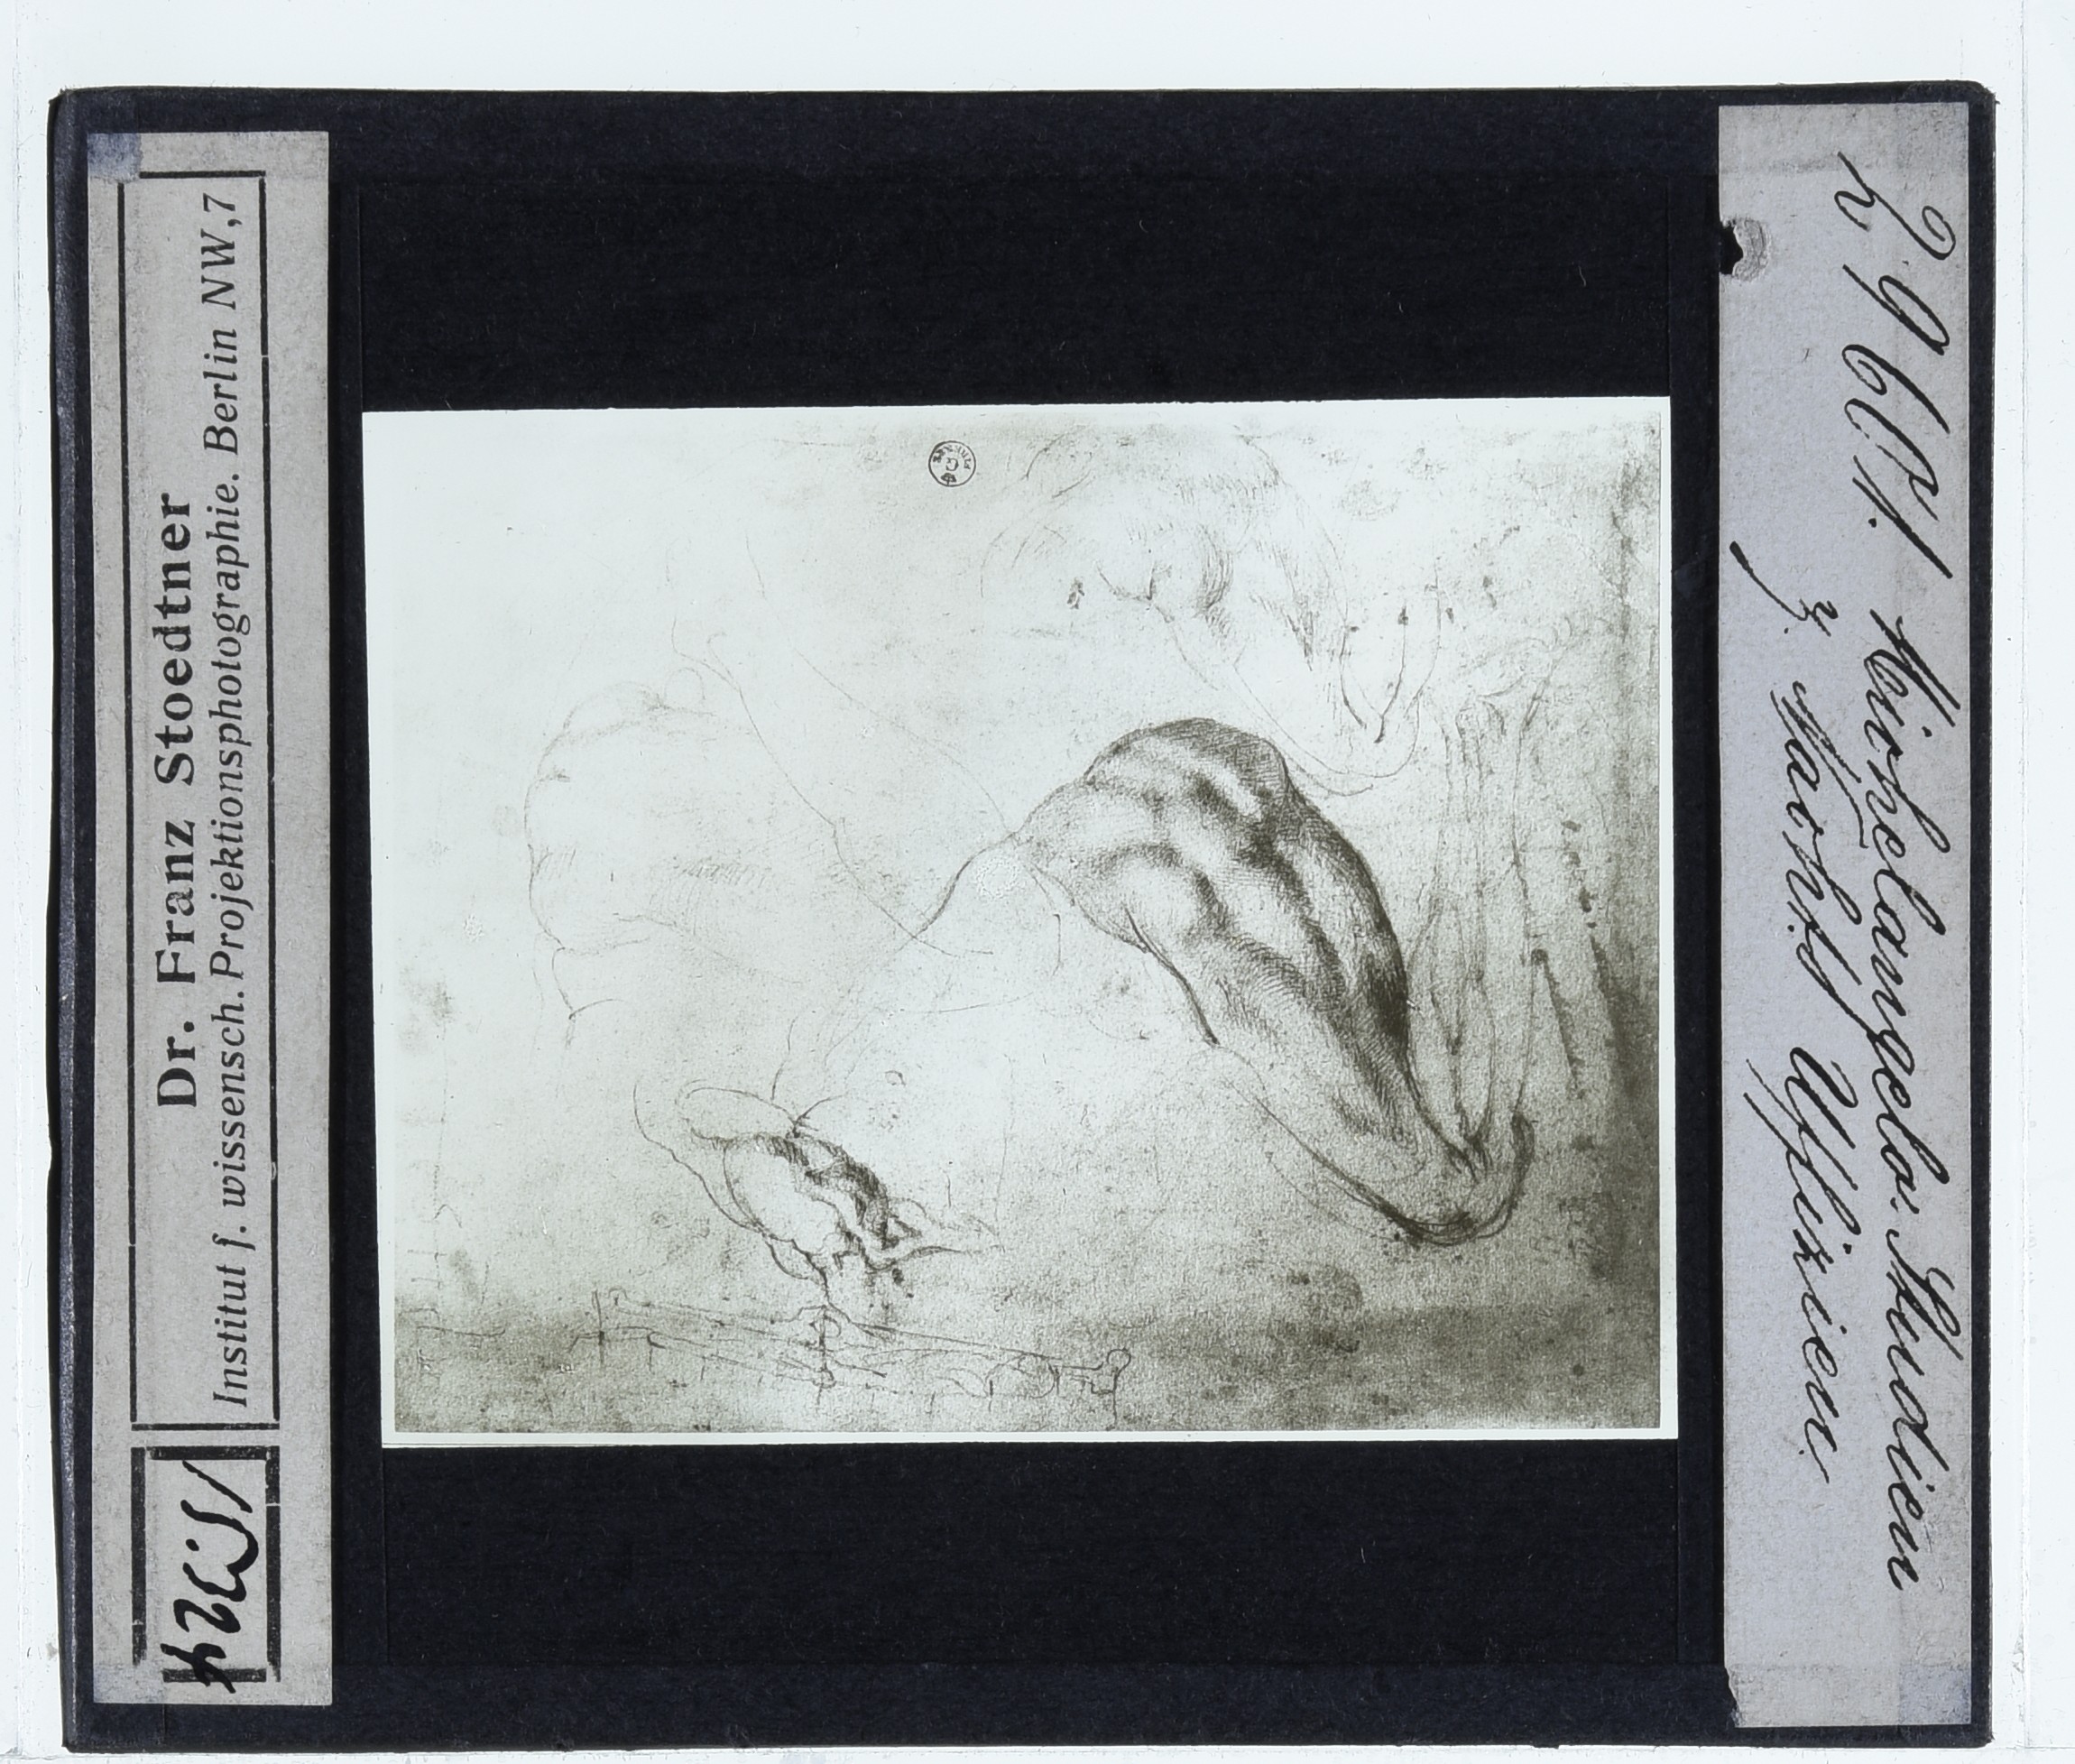 Dr. Franz Stoedtner
Institut f. wissensch. Projektionsphotographie. Berlin NW,7
Michelangelo: Studien
z. Nacht. Uffizien.